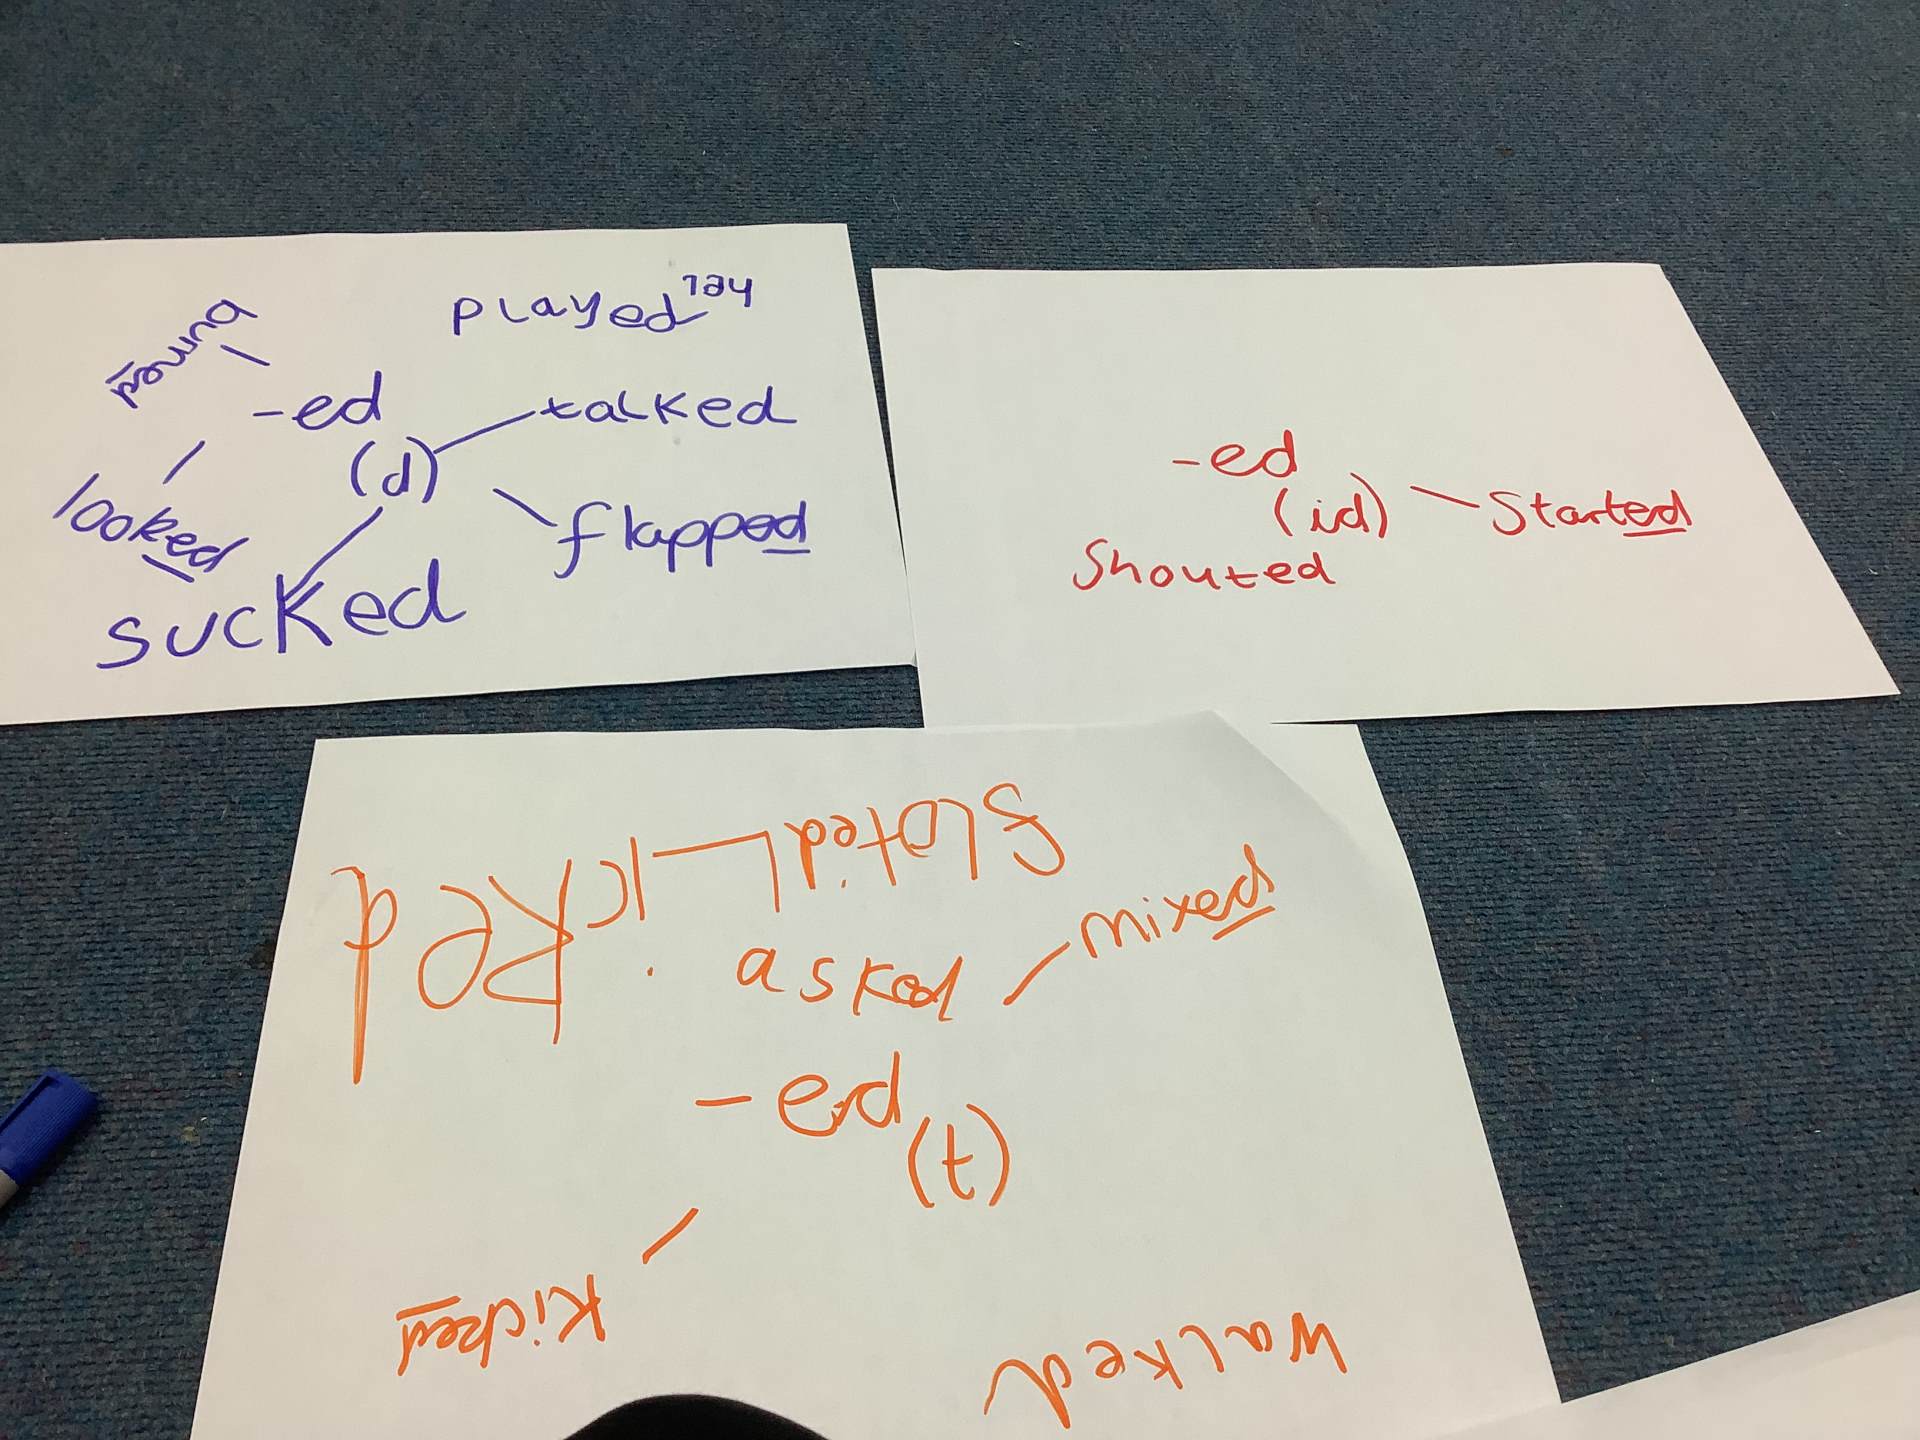 played
burned
-ed
(d)
talked
looked
flapped
sucked
-ed
(id)
started
Shouted
licked
asked
mixed
-ed
(t)
kicked
walked